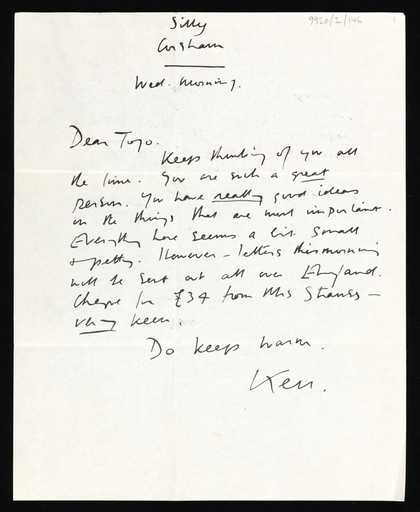 9920/2/146
Silly
Corsham
Wed. morning.
Dear Toyo.
Keeps thinking of you all
the time. You are such a great
person. You have really good ideas
on the things that are most important.
Everything here seems a bit small
+ petty. However – letters this morning
will be sent out all over England.
Cheque for £34 from Mrs Strauss –
very keen.
Do keep warm.
Ken.